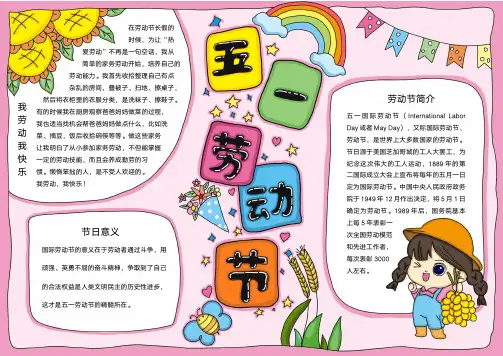 在劳动节长假的
时候，为让“热
爱劳动”不再是一句空话，我从
简单的家务劳动开始，培养自己的
劳动能力。我首先收拾整理自己有点
杂乱的房间，叠被子、扫地、擦桌子，
然后将衣柜里的衣服分类，是洗袜子、擦鞋子。
有的时候我在厨房观察爸爸妈妈做菜的过程，
我也适当找机会帮爸爸妈妈做点什么，比如洗
菜、摘豆、饭后收拾碗筷等等。做这些家务
让我明白了从小参加家务劳动，不但能掌握
一定的劳动技能，而且会养成勤劳的习
惯。懒惰笨拙的人，是不受人欢迎的。
我劳动，我快乐！
我劳动我快乐
五一劳动节
节日意义
国际劳动节的意义在于劳动者通过斗争，用
顽强、英勇不屈的奋斗精神，争取到了自己
的合法权益是人类文明民主的历史性进步，
这才是五一劳动节的精髓所在。
劳动节简介
五一国际劳动节（International Labor
Day 或者 May Day），又称国际劳动节、
劳动节，是世界上大多数国家的劳动节。
节日源于美国芝加哥城的工人大罢工，为
纪念这次伟大的工人运动，1889 年的第
二国际成立大会上宣布将每年的五月一日
定为国际劳动节。中国中央人民政府政务
院于 1949 年 12 月作出决定，将 5 月 1 日
确定为劳动节。1989 年后，国务院基本
上每 5 年表彰一
次全国劳动模范
和先进工作者，
每次表彰 3000
人左右。